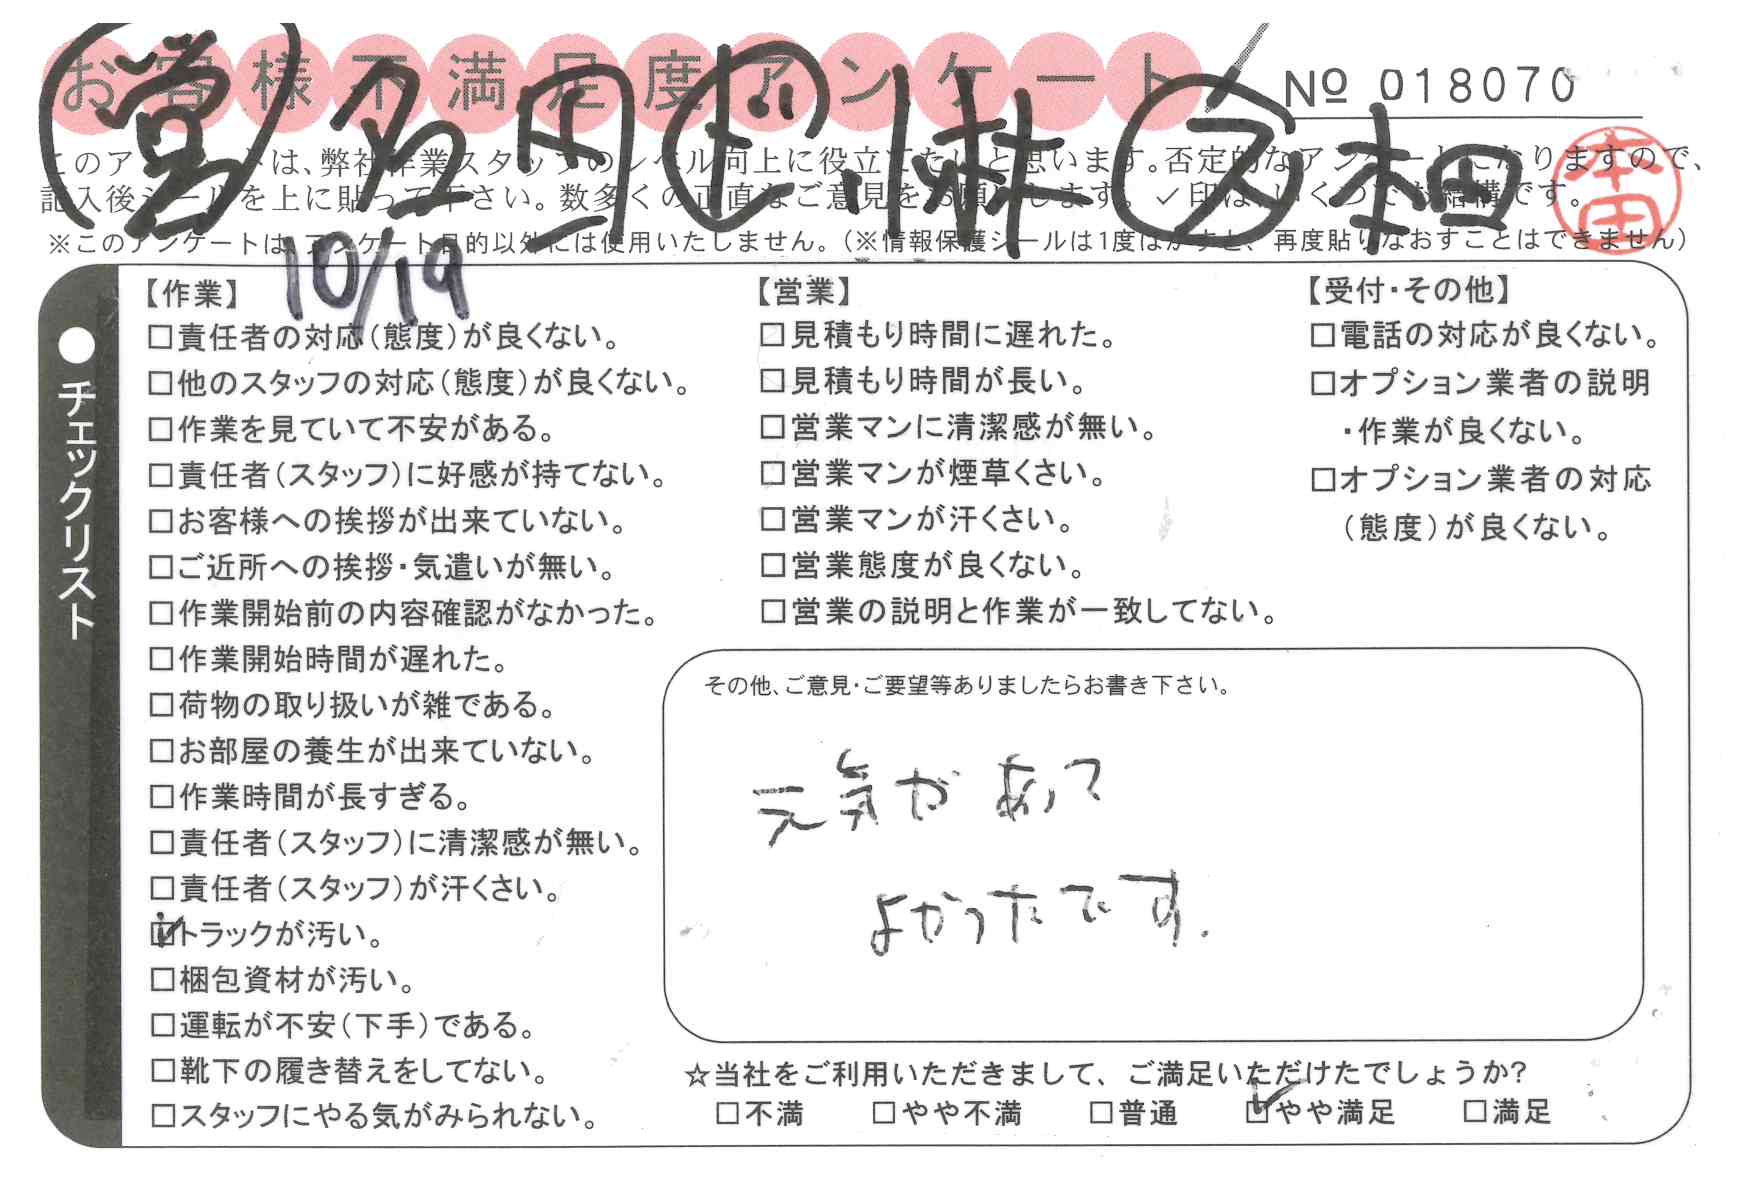 お客様不満足度アンケート
№ 018070
営 名田 ド 小林 ス 本田
本田
このアンケートは、弊社作業スタッフのレベル向上に役立てたいと思います。否定的なアンケートになりますので、
記入後シールを上に貼って下さい。数多くの正直なご意見をお願いします。✓印は、いくつでも結構です。
※このアンケートは、アンケート目的以外には使用いたしません。（※情報保護シールは1度はがすと、再度貼りなおすことはできません）
10/19
●チェックリスト
【作業】
□責任者の対応（態度）が良くない。
□他のスタッフの対応（態度）が良くない。
□作業を見ていて不安がある。
□責任者（スタッフ）に好感が持てない。
□お客様への挨拶が出来ていない。
□ご近所への挨拶・気遣いが無い。
□作業開始前の内容確認がなかった。
□作業開始時間が遅れた。
□荷物の取り扱いが雑である。
□お部屋の養生が出来ていない。
□作業時間が長すぎる。
□責任者（スタッフ）に清潔感が無い。
□責任者（スタッフ）が汗くさい。
☑トラックが汚い。
□梱包資材が汚い。
□運転が不安（下手）である。
□靴下の履き替えをしてない。
□スタッフにやる気がみられない。
【営業】
□見積もり時間に遅れた。
□見積もり時間が長い。
□営業マンに清潔感が無い。
□営業マンが煙草くさい。
□営業マンが汗くさい。
□営業態度が良くない。
□営業の説明と作業が一致してない。
【受付・その他】
□電話の対応が良くない。
□オプション業者の説明
・作業が良くない。
□オプション業者の対応
（態度）が良くない。
その他、ご意見・ご要望等ありましたらお書き下さい。
元気があって
よかったです.
☆当社をご利用いただきまして、ご満足いただけたでしょうか?
□不満 □やや不満 □普通 ☑やや満足 □満足